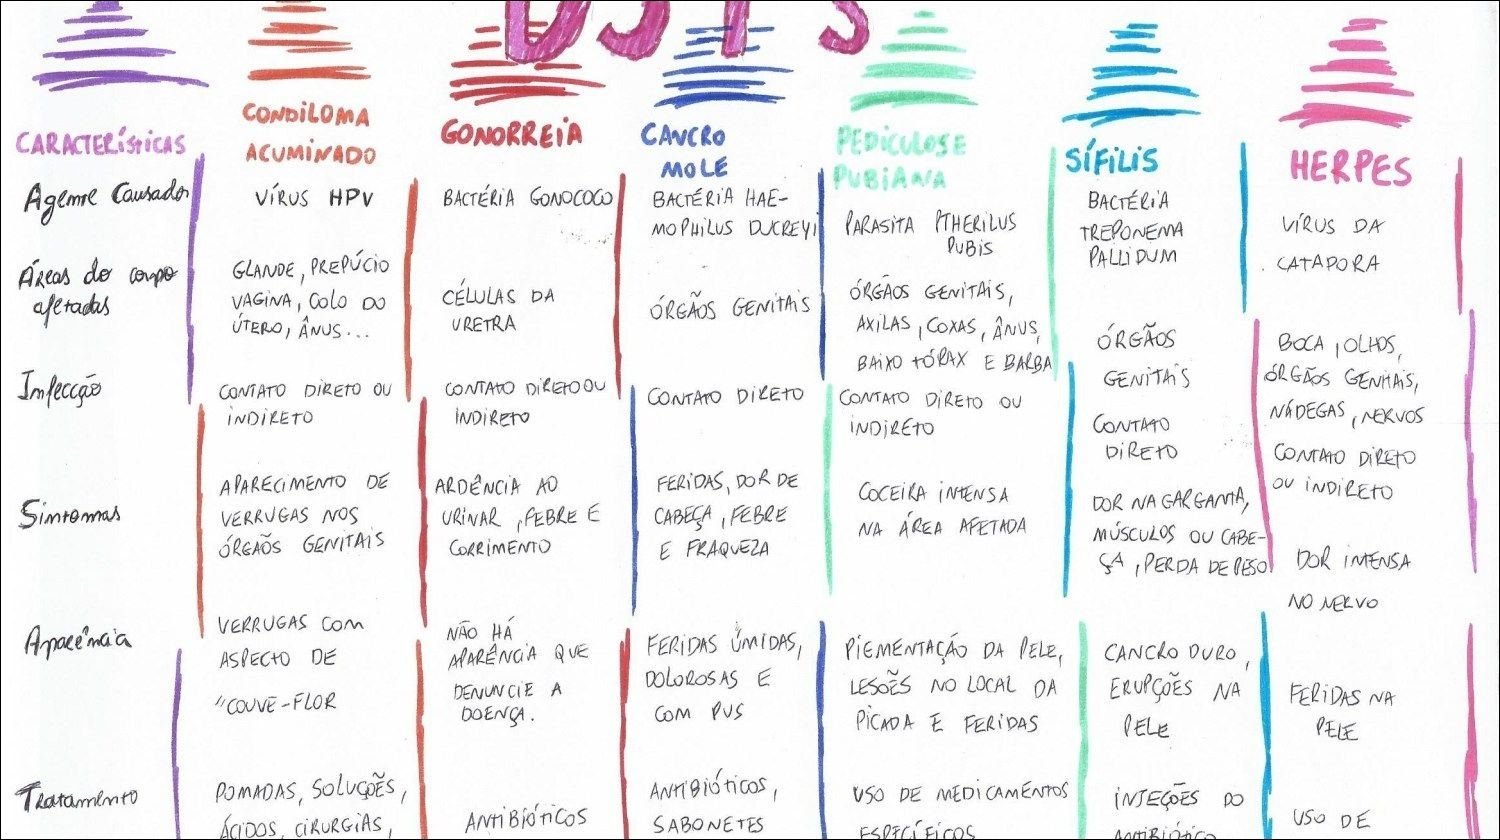 DSTS
CARACTERÍSTICAS
Agente Causador
Áreas do corpo
afetadas
Infecção
Sintomas
Aparência
Tratamento
CONDILOMA
ACUMINADO
VÍRUS HPV
GLANDE, PREPÚCIO
VAGINA, COLO DO
ÚTERO, ÂNUS...
CONTATO DIRETO OU
INDIRETO
APARECIMENTO DE
VERRUGAS NOS
ÓRGÃOS GENITAIS
VERRUGAS COM
ASPECTO DE
"COUVE-FLOR
POMADAS, SOLUÇÕES,
ÁCIDOS, CIRURGIAS,
GONORREIA
BACTÉRIA GONOCOCO
CÉLULAS DA
URETRA
CONTATO DIRETO OU
INDIRETO
ARDÊNCIA AO
URINAR, FEBRE E
CORRIMENTO
NÃO HÁ
APARÊNCIA QUE
DENUNCIE A
DOENÇA.
ANTIBIÓTICOS
CANCRO
MOLE
BACTÉRIA HAE-
MOPHILUS DUCREYI
ÓRGÃOS GENITAIS
CONTATO DIRETO
FERIDAS, DOR DE
CABEÇA, FEBRE
E FRAQUEZA
FERIDAS ÚMIDAS,
DOLOROSAS E
COM PUS
ANTIBIÓTICOS,
SABONETES
PEDICULOSE
PUBIANA
PARASITA PTHERILUS
PUBIS
ÓRGÃOS GENITAIS,
AXILAS, COXAS, ÂNUS,
BAIXO TÓRAX E BARBA
CONTATO DIRETO OU
INDIRETO
COCEIRA INTENSA
NA ÁREA AFETADA
PIEMENTAÇÃO DA PELE,
LESÕES NO LOCAL DA
PICADA E FERIDAS
USO DE MEDICAMENTOS
ESPECÍFICOS
SÍFILIS
BACTÉRIA
TREPONEMA
PALLIDUM
ÓRGÃOS
GENITAIS
CONTATO
DIRETO
DOR NA GARGANTA,
MÚSCULOS OU CABE-
ÇA, PERDA DE PESO
CANCRO DURO,
ERUPÇÕES NA
PELE
INJEÇÕES DO
ANTIBIÓTICO
HERPES
VÍRUS DA
CATAPORA
BOCA, OLHOS,
ÓRGÃOS GENITAIS,
NÁDEGAS, NERVOS
CONTATO DIRETO
OU INDIRETO
DOR INTENSA
NO NERVO
FERIDAS NA
PELE
USO DE